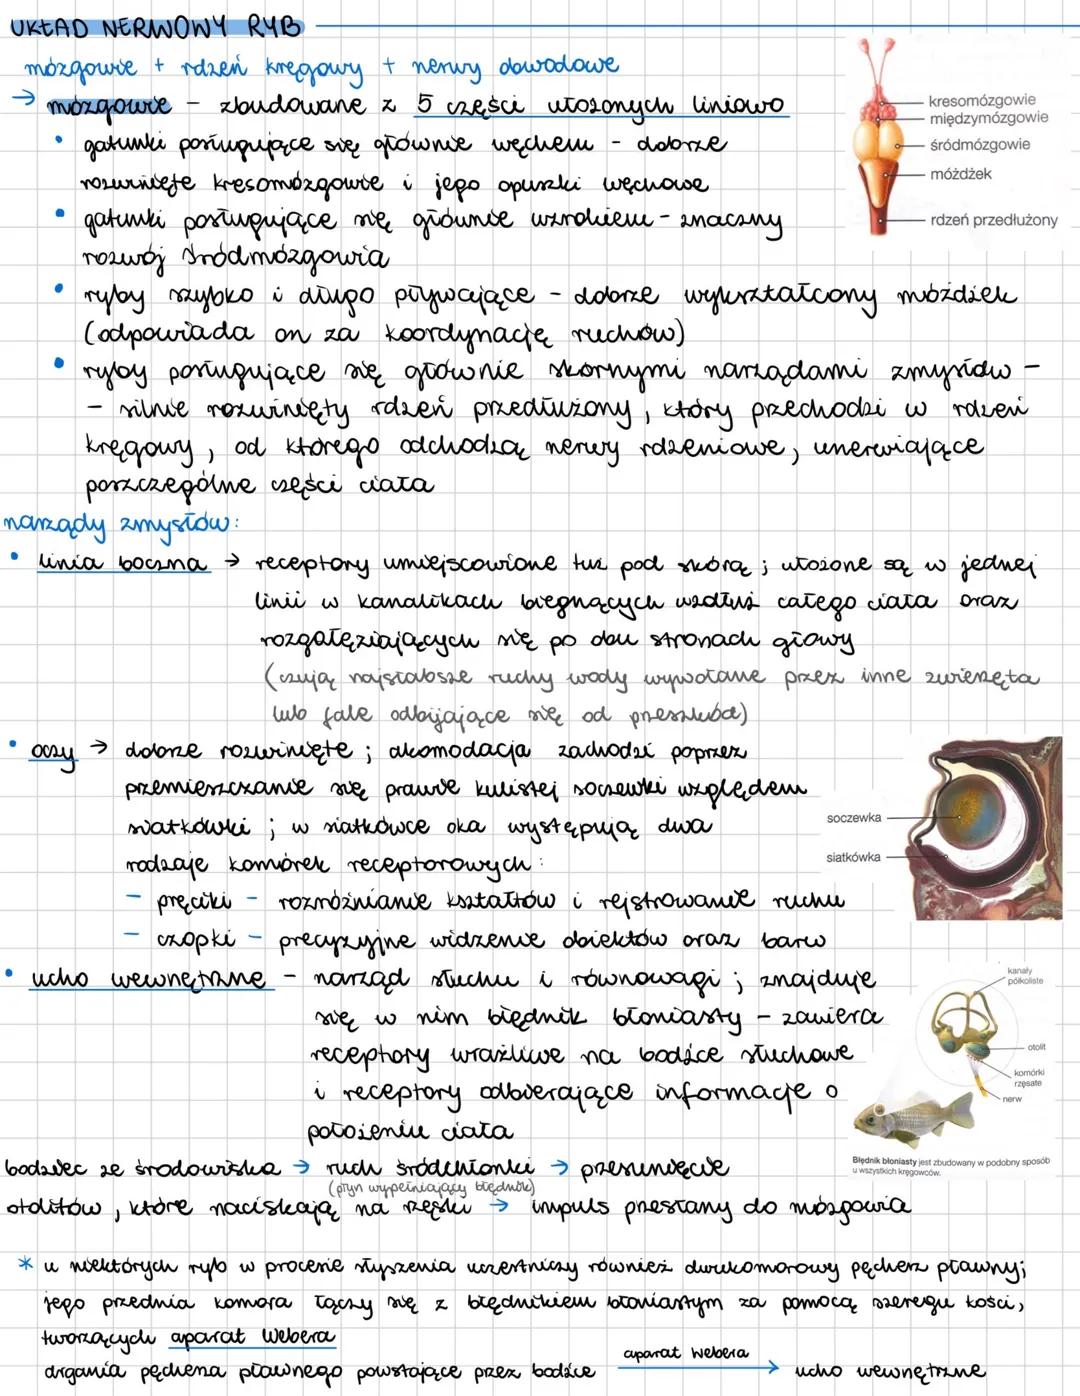 UKŁAD NERWOWY RYB
mózgowie + rdzeń kręgowy + nerwy dowodowe
→ mózgowie - zbudowane z 5 części ułożonych liniowo
• gatunki posługujące się głównie węchem - dobrze
rozwinięte kresomózgowie i jego opuszki węchowe
• gatunki posługujące się głównie wzrokiem - znaczny
rozwój śródmózgowia
• ryby szybko i długo pływające - dobrze wykształcony móżdżek
(odpowiada on za koordynację ruchów)
• ryby posługujące się głównie skórnymi narządami zmysłów -
- silnie rozwinięty rdzeń przedłużony, który przechodzi w rdzeń
kręgowy, od którego odchodzą nerwy rdzeniowe, unerwiające
poszczególne części ciała
kresomózgowie
międzymózgowie
śródmózgowie
móżdżek
rdzeń przedłużony
narządy zmysłów:
• linia boczna → receptory umiejscowione tuż pod skórą; ułożone są w jednej
linii w kanalikach biegnących wzdłuż całego ciała oraz
rozgałęziających się po obu stronach głowy
(czują najsłabsze ruchy wody wywołane przez inne zwierzęta
lub fale odbijające się od przeszkód)
• oczy → dobrze rozwinięte; akomodacja zachodzi poprzez
przemieszczanie się prawie kulistej soczewki względem
siatkówki; w siatkówce oka występują dwa
rodzaje komórek receptorowych:
- pręciki - rozróżnianie kształtów i rejstrowanie ruchu
- czopki - precyzyjne widzenie obiektów oraz barw
soczewka
siatkówka
• ucho wewnętrzne - narząd słuchu i równowagi; znajduje
się w nim błędnik błoniasty - zawiera
receptory wrażliwe na bodźce słuchowe
i receptory odbierające informacje o
położeniu ciała
kanały
półkoliste
otolit
komórki
rzęsate
nerw
Błędnik błoniasty jest zbudowany w podobny sposób
u wszystkich kręgowców.
bodziec ze środowiska → ruch śródchłonki → przesunięcie
(płyn wypełniający błędnik)
otolitów, które naciskają na rzęski → impuls przesłany do mózgowia
* u niektórych ryb w procesie słyszenia uczestniczy również dwukomorowy pęcherz pławny;
jego przednia komora łączy się z błędnikiem błoniastym za pomocą szeregu kości,
tworzących aparat Webera
drgania pęcherza pławnego powstające przez bodźce aparat Webera → ucho wewnętrzne